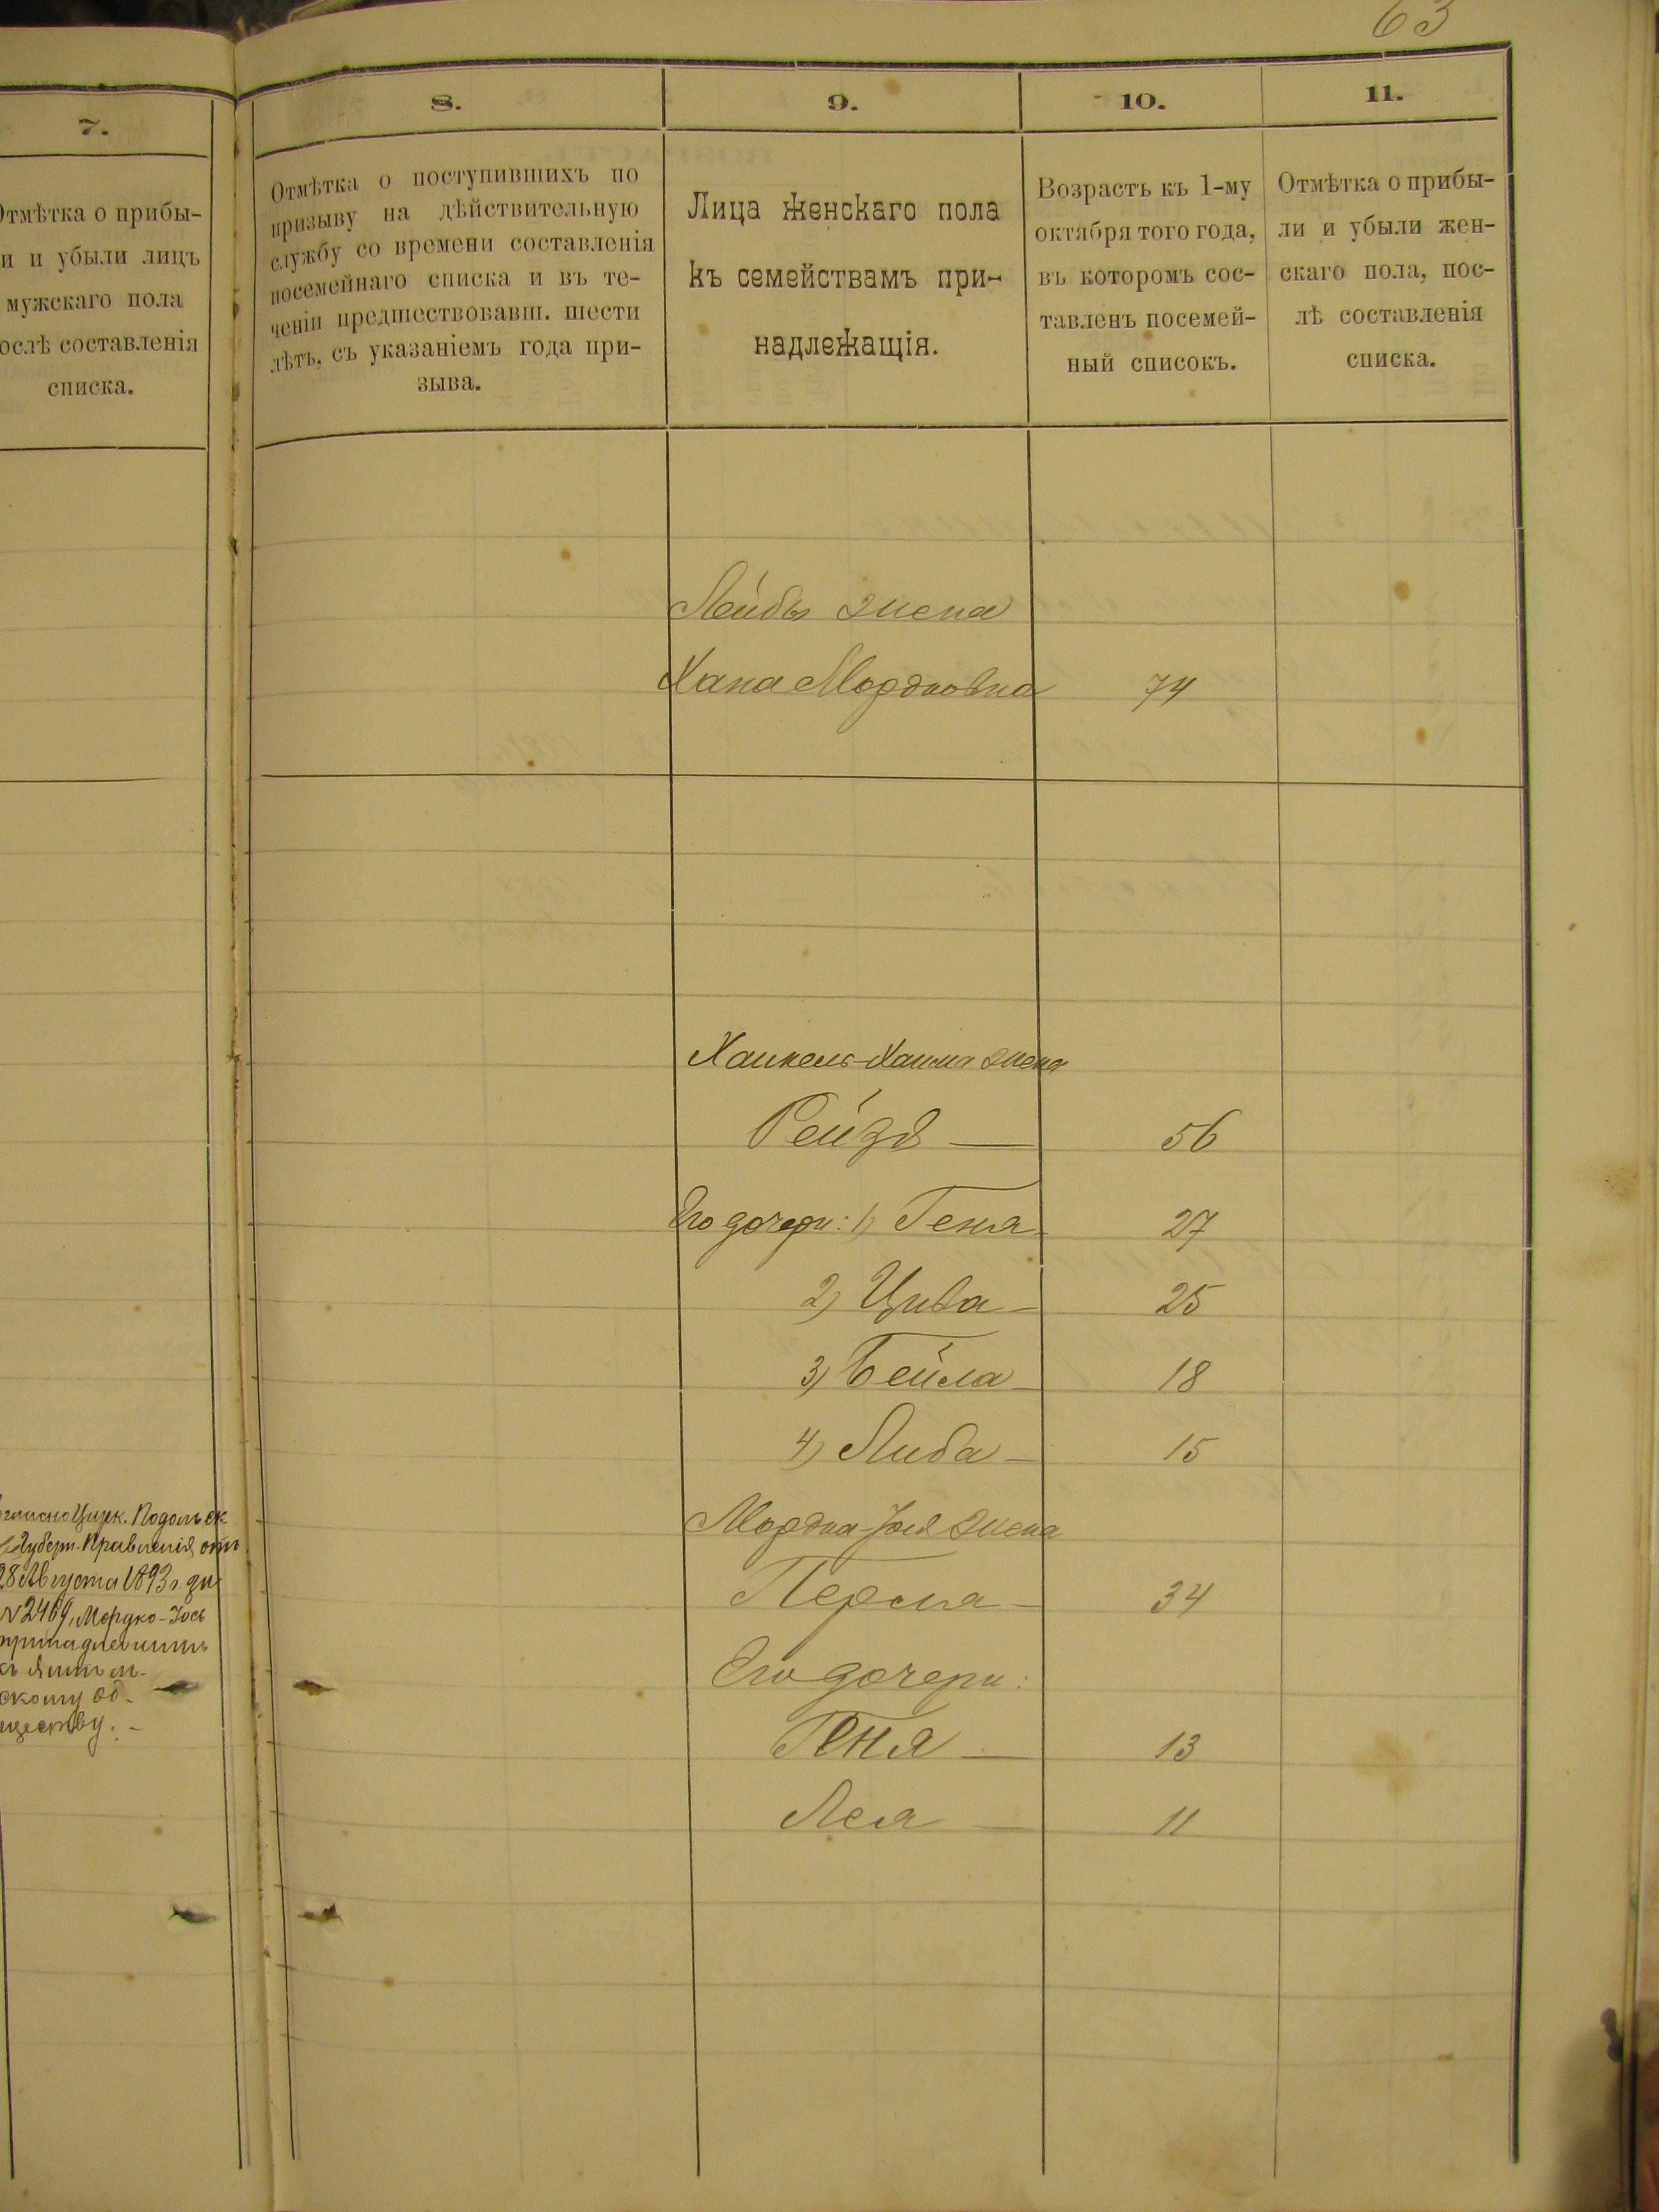 63
7.
Отмѣтка о прибы-
и и убыли лицъ
мужскаго пола
ослѣ составленія
списка.
Цирк. Подольск.
Губерн. Правленія отъ
28 Августа 1893 г. за
№ 2469, Мордко-Іось
къ
скому об-
ществу. -
8.
Отмѣтка о поступившихъ по
призыву на дѣйствительную
службу со времени составленія
посемейнаго списка и въ те-
ченіи предшествовавш. шести
лѣтъ, съ указаніемъ года при-
зыва.
9.
Лица женскаго пола
къ семействамъ при-
надлежащія.
10.
Возрастъ къ 1-му
октября того года,
въ которомъ сос-
тавленъ посемей-
ный списокъ.
11.
Отмѣтка о прибы-
ли и убыли жен-
скаго пола, пос-
лѣ составленія
списка.
Лейбы жена
Хана Мордковна 74
Хаима жена
Рейзя — 56
Его дочери: 1) Геня 27
2) Цива — 25
3) Бейла — 18
4) Либа — 15
Мордка-Іося жена
Перля — 34
Его дочери:
Геня — 13
Лея — 11